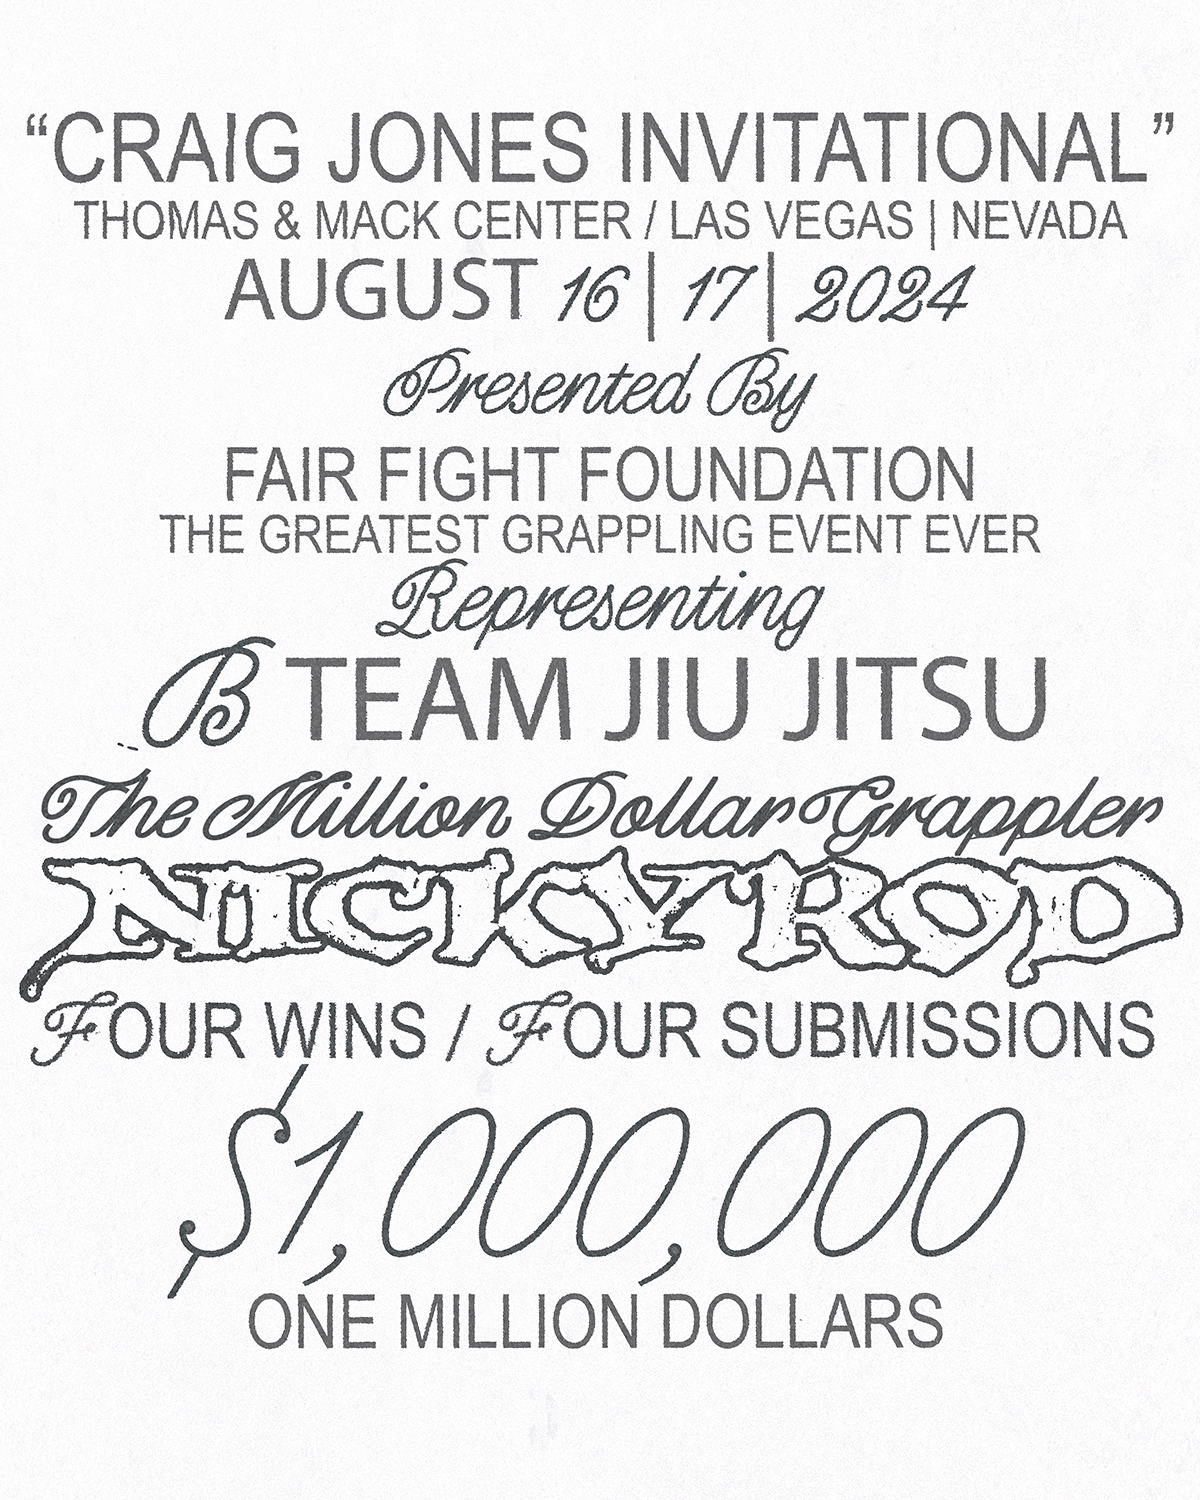 “CRAIG JONES INVITATIONAL”
THOMAS & MACK CENTER / LAS VEGAS | NEVADA
AUGUST 16 | 17 | 2024
Presented By
FAIR FIGHT FOUNDATION
THE GREATEST GRAPPLING EVENT EVER
Representing
B TEAM JIU JITSU
The Million Dollar Grappler
NICKYROD
FOUR WINS / FOUR SUBMISSIONS
$1,000,000
ONE MILLION DOLLARS